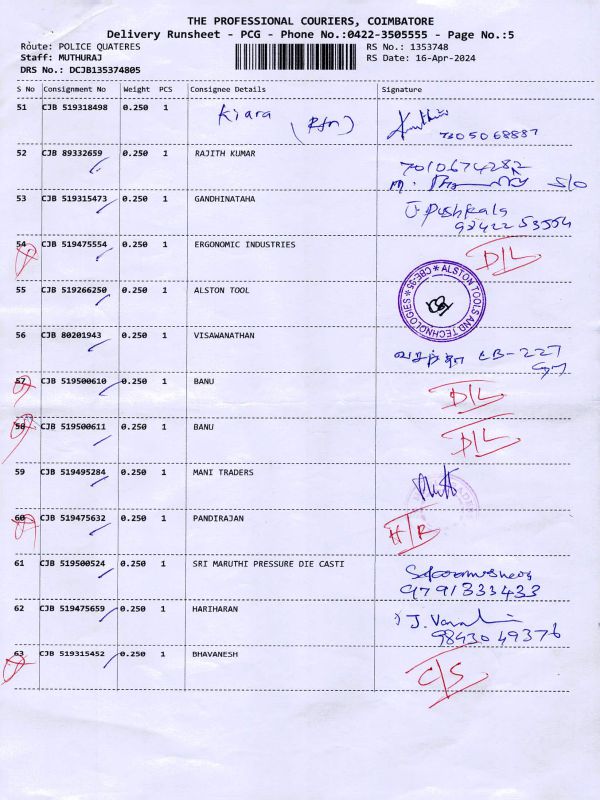 THE PROFESSIONAL COURIERS, COIMBATORE
Delivery Runsheet - PCG - Phone No.:0422-3505555 - Page No.:5
Route: POLICE QUATERES
RS No.: 1353748
Staff: MUTHURAJ
RS Date: 16-Apr-2024
DRS No.: DCJB135374805
S No Consignment No Weight PCS Consignee Details Signature
51 CJB 519318498 0.250 1 Kiara
7305068887
52 CJB 89332659 0.250 1 RAJITH KUMAR
7010674282
M. S/O
53 CJB 519315473 0.250 1 GANDHINATAHA
J. Pushkala
9342253554
54 CJB 519475554 0.250 1 ERGONOMIC INDUSTRIES D/L
55 CJB 519266250 0.250 1 ALSTON TOOL
ALSTON TOOLS AND TECHNOLOGIES * CBE-35 *
56 CJB 80201943 0.250 1 VISAWANATHAN
CB-227
57 CJB 519500610 0.250 1 BANU D/L
58 CJB 519500611 0.250 1 BANU D/L
59 CJB 519495284 0.250 1 MANI TRADERS
60 CJB 519475632 0.250 1 PANDIRAJAN H/R
61 CJB 519500524 0.250 1 SRI MARUTHI PRESSURE DIE CASTI
9791333433
62 CJB 519475659 0.250 1 HARIHARAN
98430 49376
63 CJB 519315452 0.250 1 BHAVANESH C/S